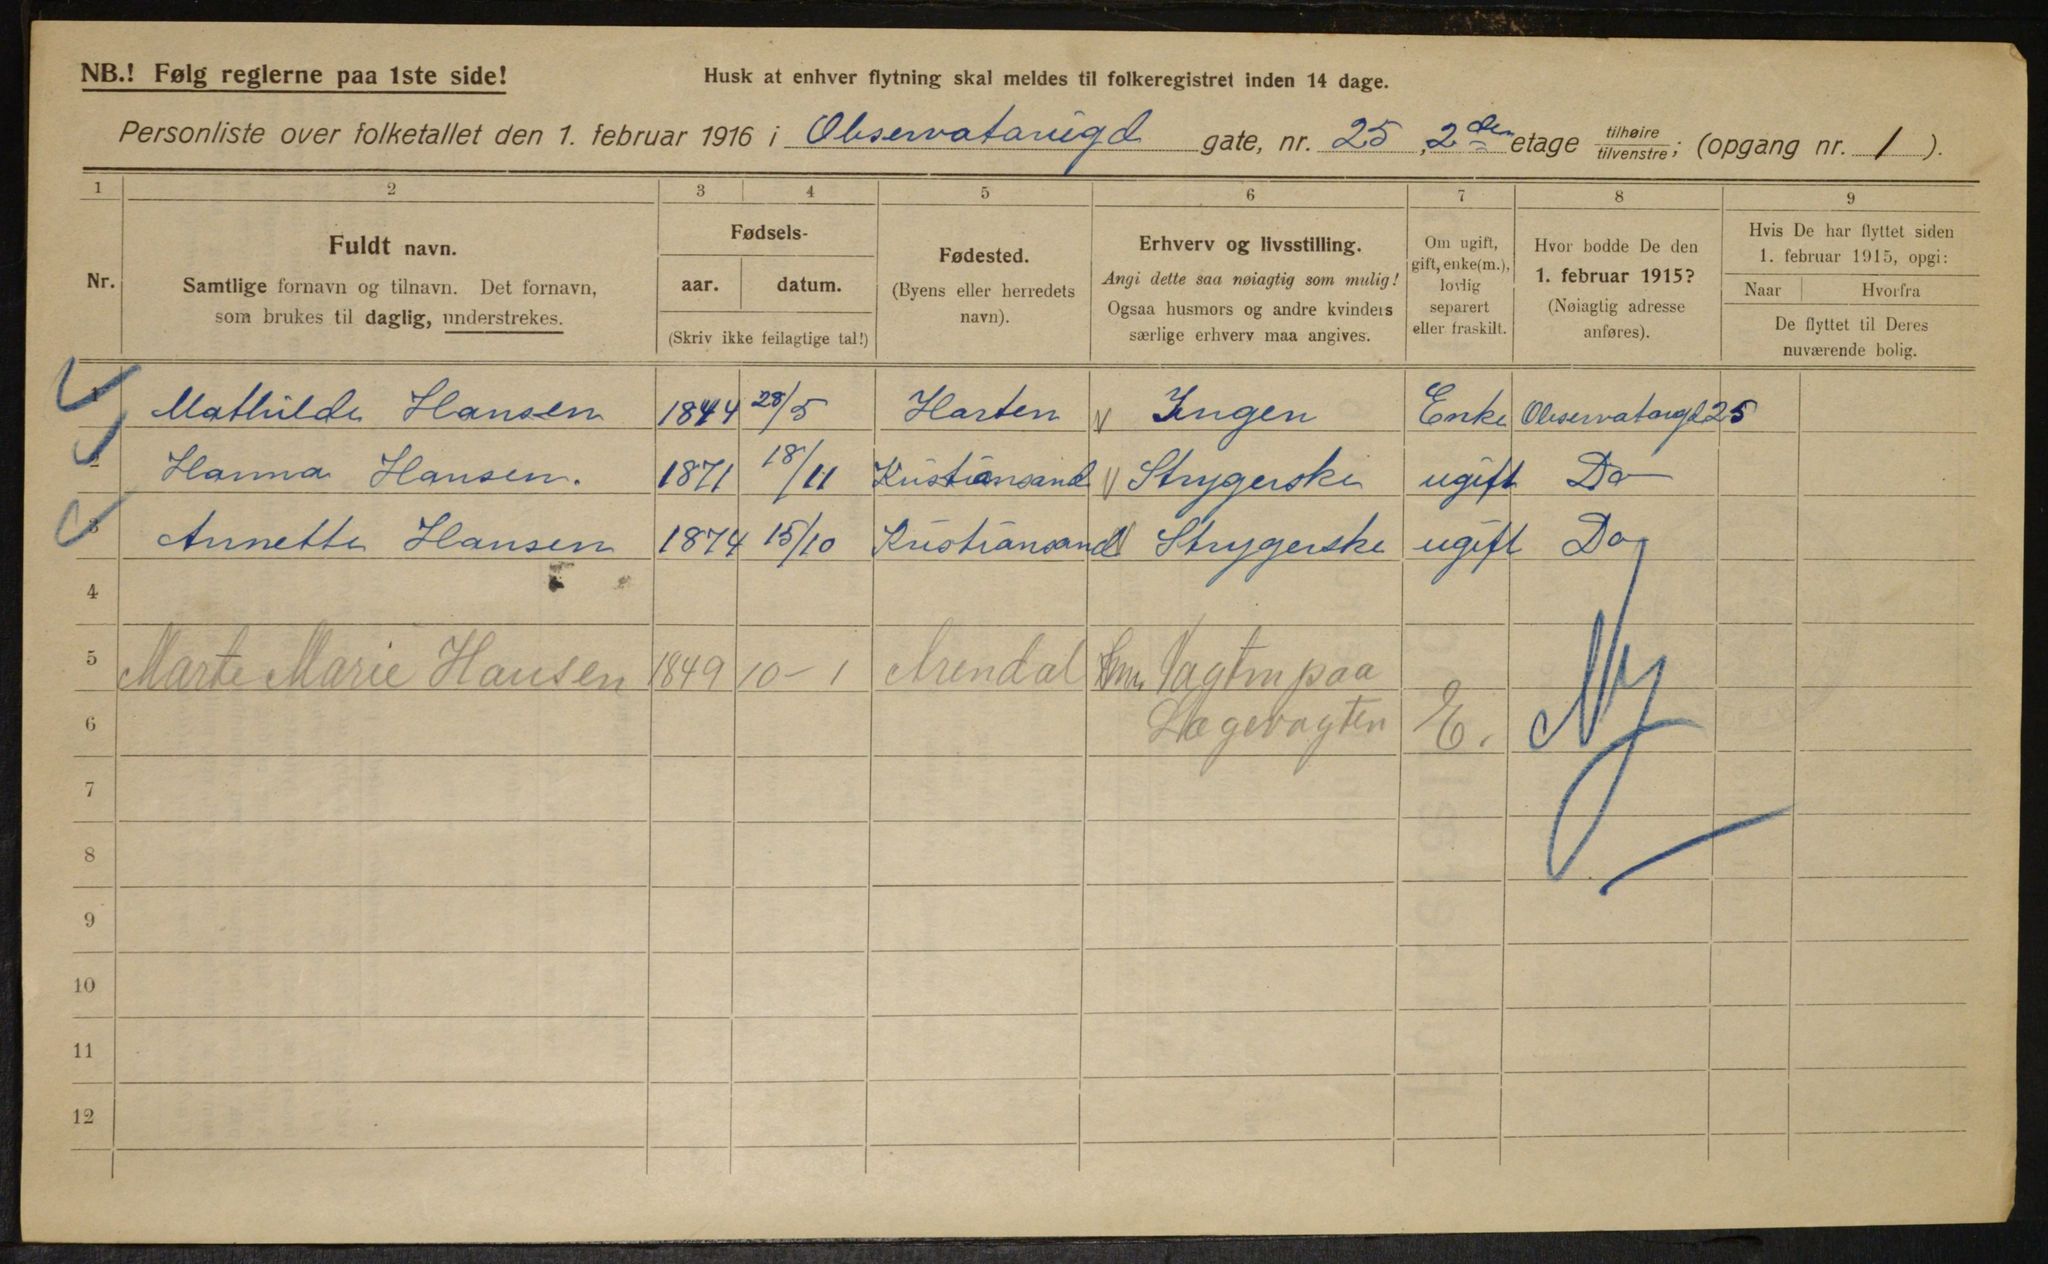 NB.! Følg reglerne paa 1ste side!
Husk at enhver flytning skal meldes til folkeregistret inden 14 dage.
Personliste over folketallet den 1. februar 1916 i Observatorigd gate, nr. 25, 2den etage tilhøire/tilvenstre; (opgang nr. 1).
1 2 3 4 5 6 7 8 9
Nr.
Fuldt navn.
Samtlige fornavn og tilnavn. Det fornavn,
som brukes til daglig, understrekes.
Fødsels-
aar. datum.
(Skriv ikke feilagtige tal!)
Fødested.
(Byens eller herredets
navn).
Erhverv og livsstilling.
Angi dette saa nøiagtig som mulig!
Ogsaa husmors og andre kvinders
særlige erhverv maa angives.
Om ugift,
gift, enke(m.),
lovlig
separert
eller fraskilt.
Hvor bodde De den
1. februar 1915?
(Nøiagtig adresse
anføres).
Hvis De har flyttet siden
1. februar 1915, opgi:
Naar Hvorfra
De flyttet til Deres
nuværende bolig.
1 Mathilde Hansen 1844 28/5 Harten Ingen Enke Observatorigd 25
2 Hanna Hansen. 1871 18/11 Kristiansand Strygerske ugift Do
3 Annette Hansen 1874 15/10 Kristiansand Strygerske ugift Do
4
5 Marte Marie Hansen 1849 10-1 Arendal Vagtm paa
6 Lægevagten E. Ny
7
8
9
10
11
12